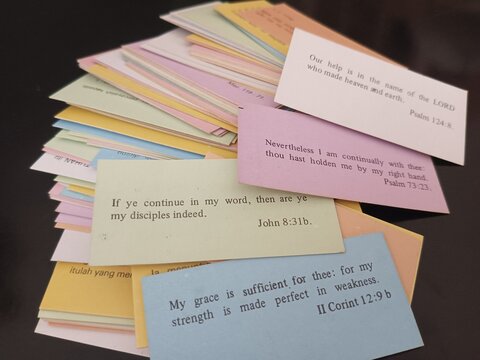 Our help is in the name of the LORD
who made heaven and earth.
Psalm 124-8.
Nevertheless I am continually with thee:
thou hast holden me by my right hand.
Psalm 73:23.
If ye continue in my word, then are ye
my disciples indeed.
John 8:31b.
My grace is sufficient for thee: for my
strength is made perfect in weakness.
II Corint 12:9 b
itulah yang